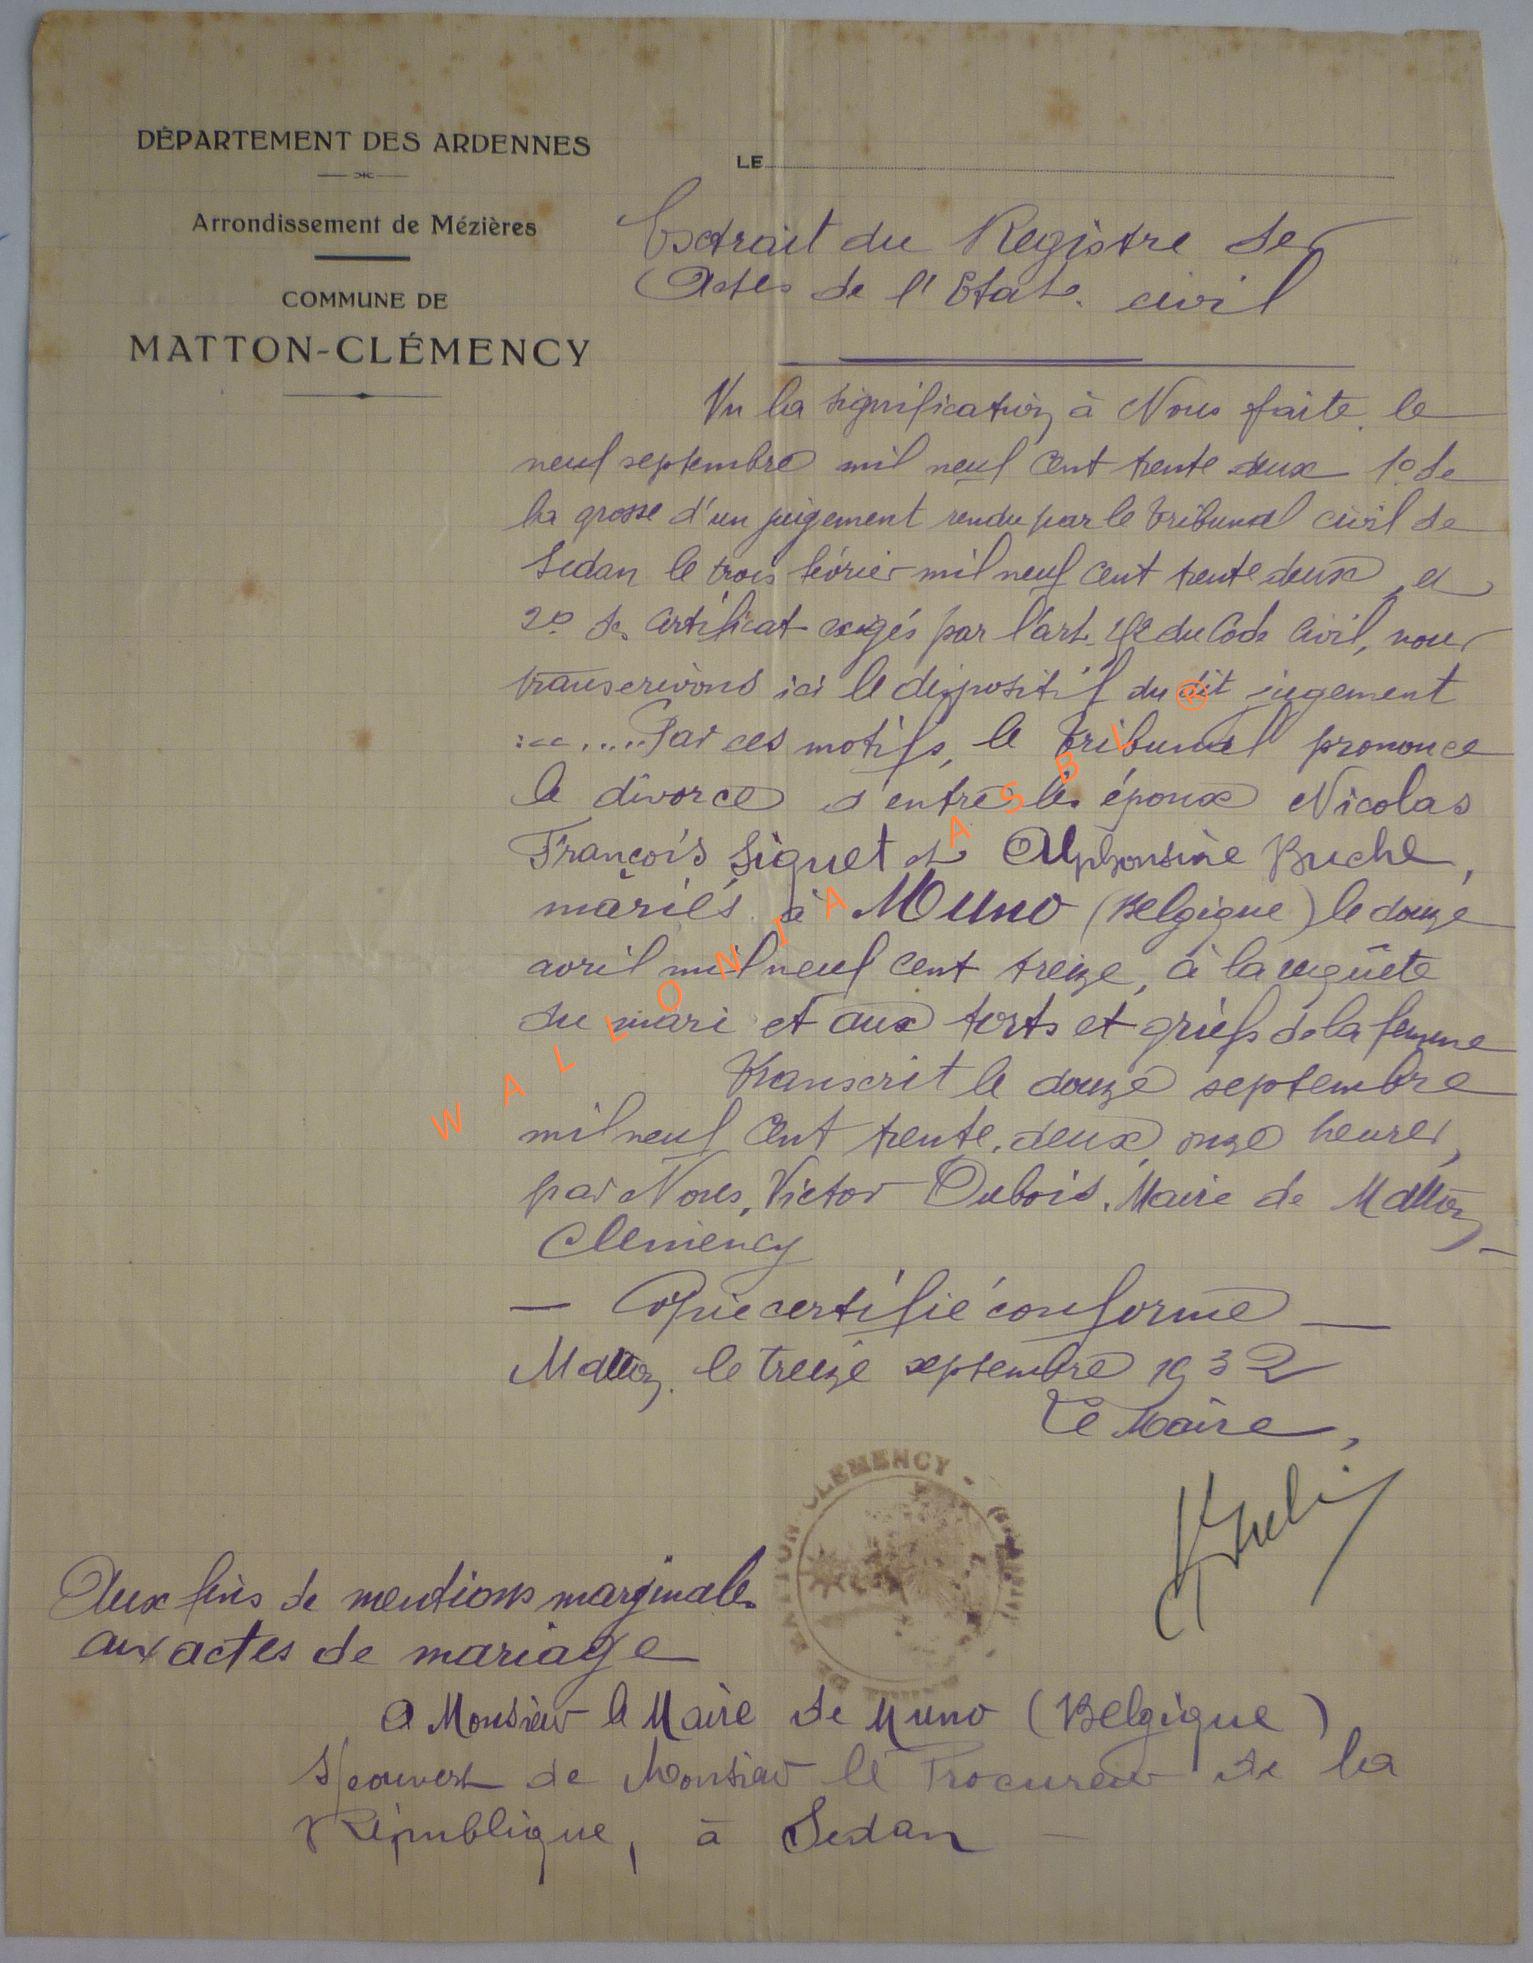 DÉPARTEMENT DES ARDENNES
Arrondissement de Mézières
COMMUNE DE
MATTON-CLÉMENCY
LE
Extrait du Registre des
Actes de l'Etat civil
Vu la signification à Nous faite, le
neuf septembre mil neuf cent trente deux 1º de
la grosse d'un jugement rendu par le tribunal civil de
Sedan le trois février mil neuf cent trente deux et
2º certificat exigés par l'art. du Code Civil, nous
transcrivons ici le dispositif du dit jugement
..... Par ces motifs, le tribunal prononce
le divorce d'entre les époux Nicolas
François Siquet et Alphonsine Buche,
mariés à Muno (Belgique) le douze
avril mil neuf cent treize, à la requête
du mari et aux torts et griefs de la femme
Transcrit le douze septembre
mil neuf cent trente deux, onze heures,
par Nous, Victor Dubois, Maire de Matton
Clemency
— Copie certifié conforme —
Matton, le treize septembre 1932
Le Maire,
MATTON-CLEMENCY
Aux fins de mentions marginales
aux actes de mariage
A Monsieur le Maire de Muno (Belgique)
S/couvert de Monsieur le Procureur de la
République, à Sedan
WALLONIA ASBL ®